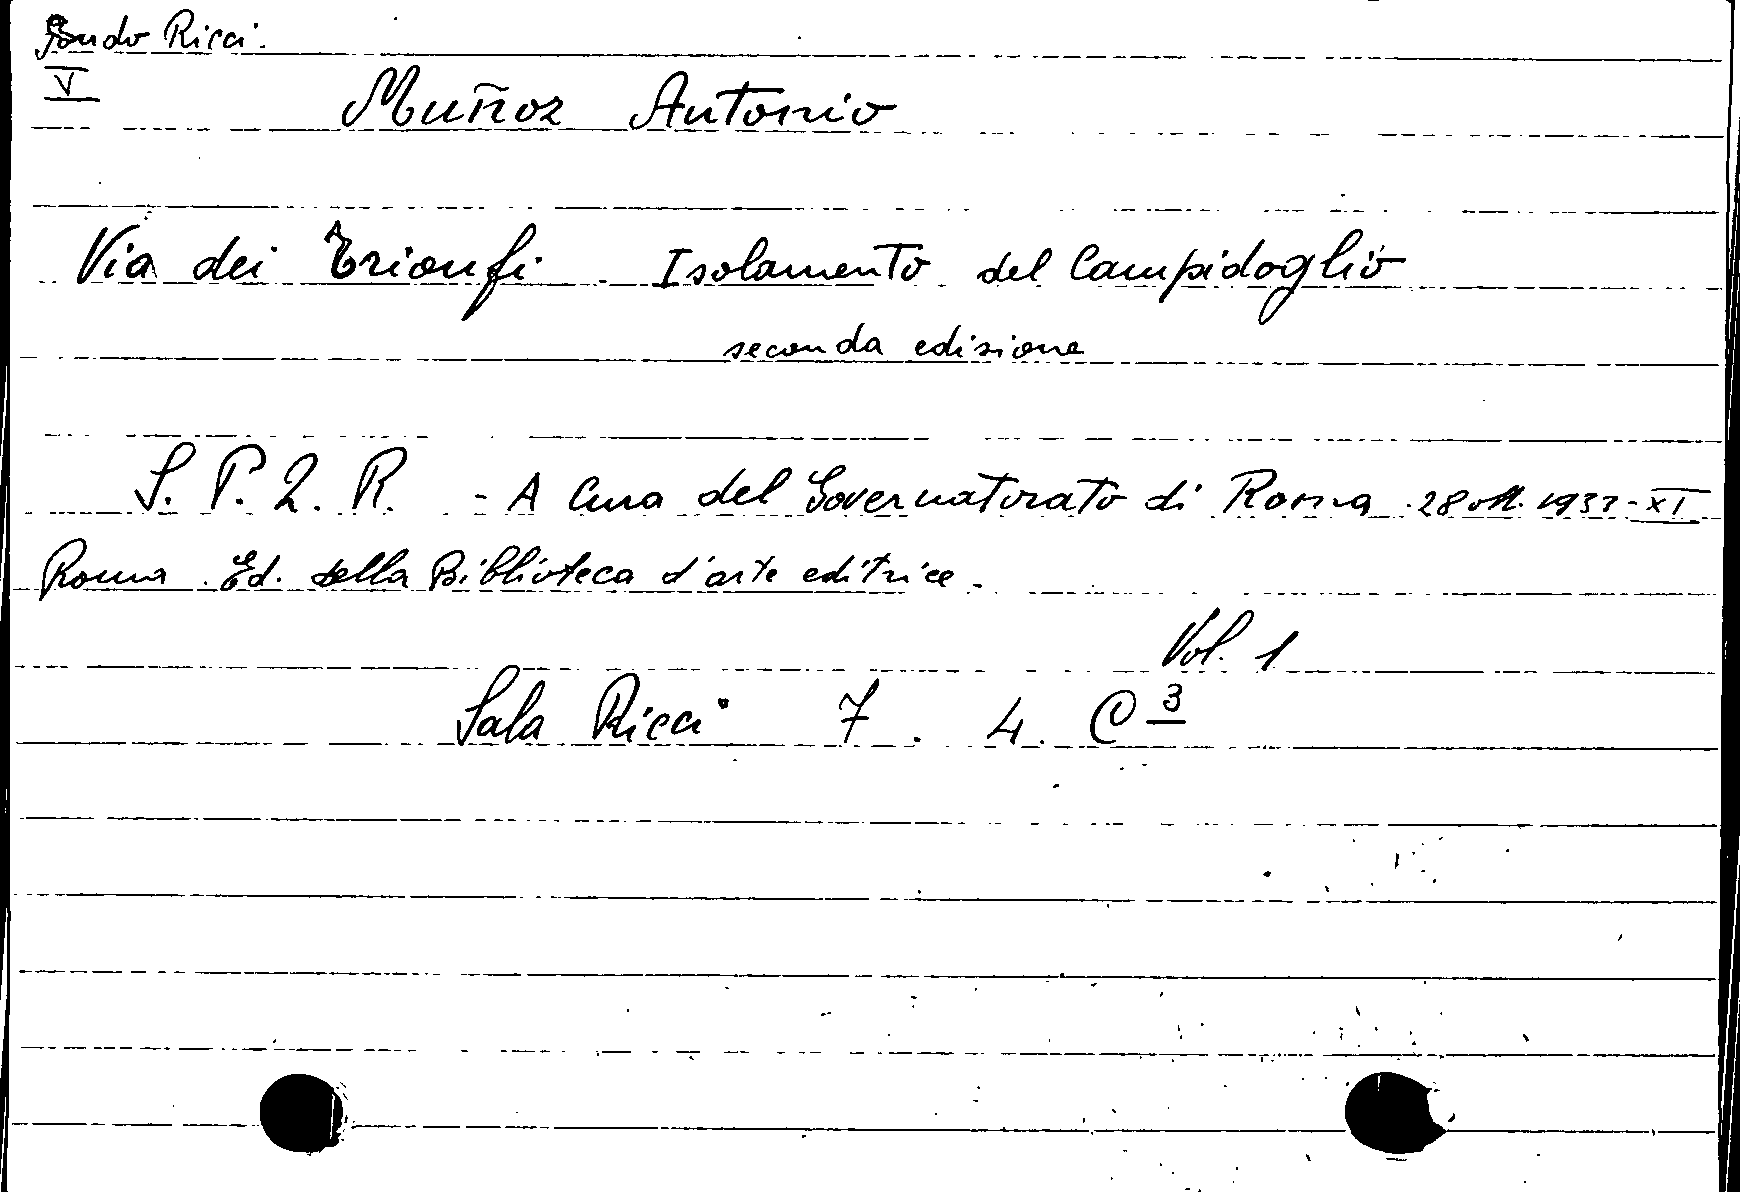 Fondo Ricci.
V
Muñoz Antonio
Via dei Trionfi. Isolamento del Campidoglio
seconda edizione
S. P. Q. R. - A Cura del Governatorato di Roma. 28 ott. 1933-XI
Roma. Ed. della Biblioteca d'arte editrice.
Vol. 1
Sala Ricci 7. 4. C 3